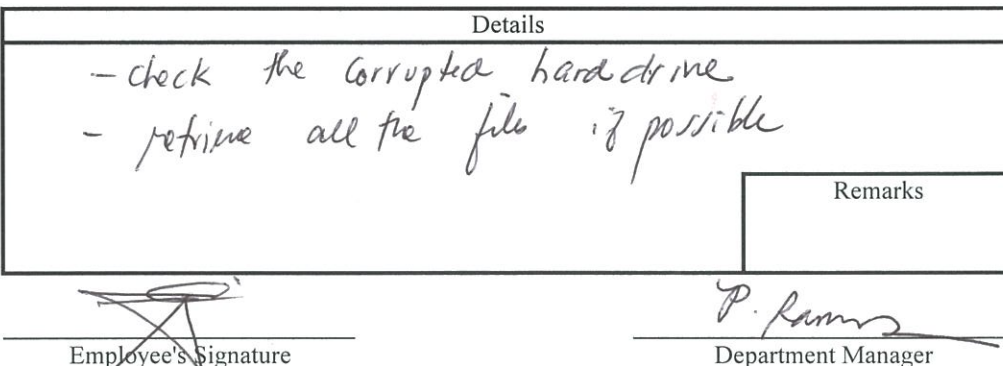 Details
- check the corrupted hard drive
- retrieve all the files if possible
Remarks
P. Ramos
Employee's Signature
Department Manager